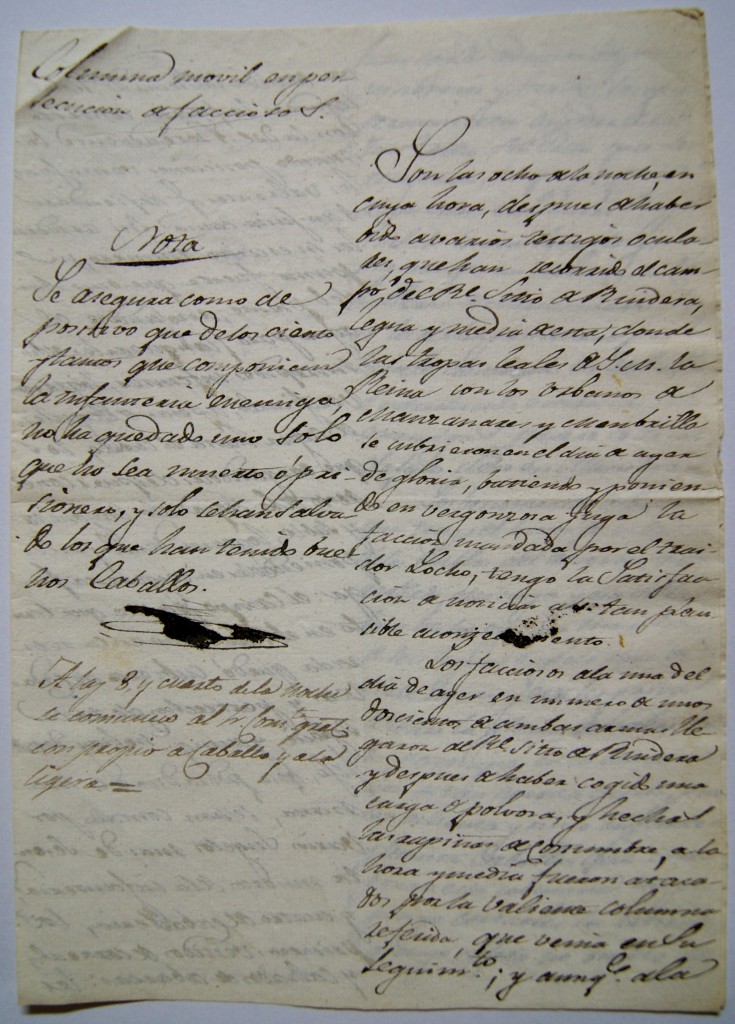 Columna movil en per
secucion de facciosos.
Nota
Se asegura como de
positivo que de los ciento
y tantos que componian
la infanteria enemiga,
no ha quedado uno solo
que no sea muerto ó pri-
sionero, y solo se han salva
do los que han tenido bue
nos Caballos.
A las 8. y cuarto de la noche
se comunicó al Sr. Comte. gral.
con propio a Caballo y a la
ligera =
Son las ocho de la noche, en
cuya hora, despues de haber
oido a varios testigos ocula-
res, que han recorrido el cam-
po, del Rl. Sitio de Ruidera,
legua y media de esta, donde
las tropas leales de S. M. la
Reina con los Urbanos de
Manzanares y Membrilla
se cubrieron en el dia de ayer
de gloria, batiendo y ponien-
do en vergonzosa fuga la
faccion mandada por el trai-
dor Locho, tengo la Satisfac-
cion de noticiar a V. tan plau-
sible acontecimiento.
Los facciosos a la una del
dia de ayer en numero de unos
doscientos de ambas armas lle
garon al Rl. Sitio de Ruidera
y despues de haber cogido una
carga de polvora, y hecho
las rapiñas de costumbre, a la
hora y media fueron ataca-
dos por la valiente columna
referida, que venia en su
seguimto.; y aunqe. a la